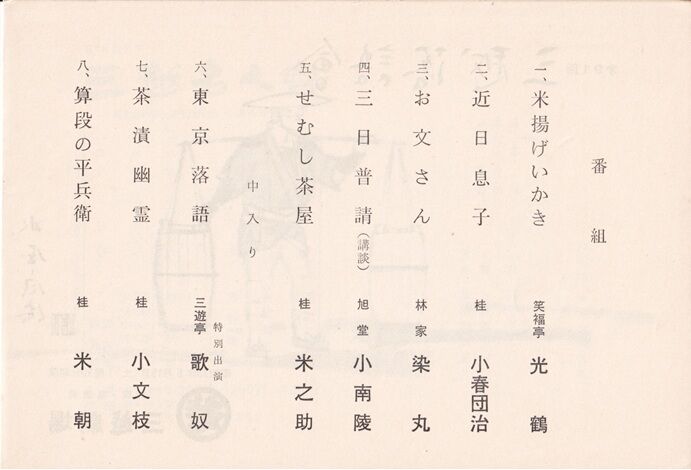 番組
一、米揚げいかき 笑福亭 光鶴
二、近日息子 桂 小春団治
三、お文さん 林家 染丸
四、三日普請(講談) 旭堂 小南陵
五、せむし茶屋 桂 米之助
中入り
六、東京落語 特別出演 三遊亭 歌奴
七、茶漬幽霊 桂 小文枝
八、算段の平兵衛 桂 米朝